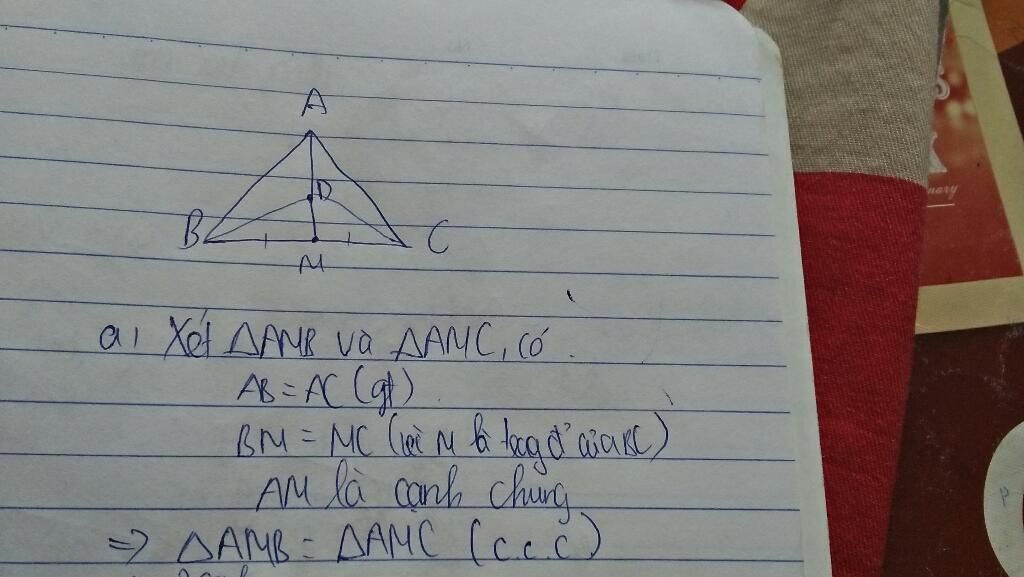 A
D
B
C
M
a, Xét ΔAMB và ΔAMC, có
AB = AC (gt)
BM = MC (vì M là trung đ' của BC)
AM là cạnh chung
=> ΔAMB = ΔAMC (c.c.c)
nary
P